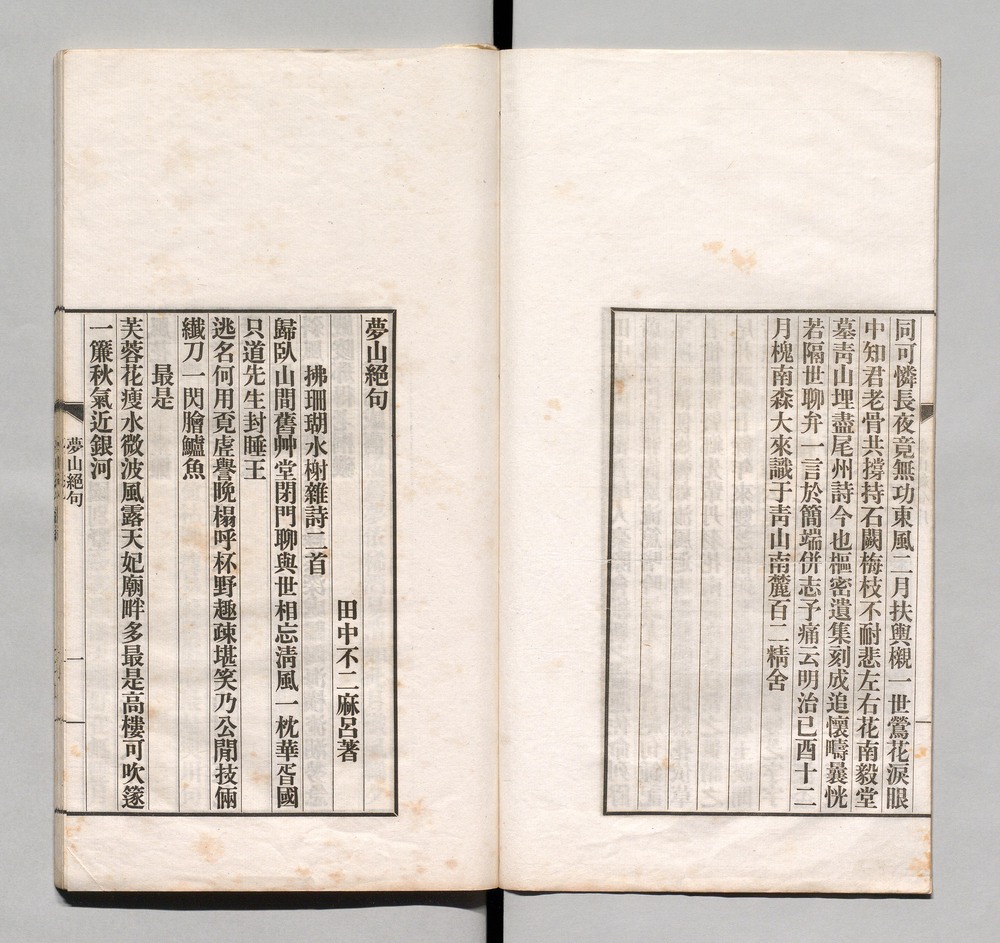 同可憐長夜竟無功東風二月扶輿櫬一世鶯花淚眼
中知君老骨共撐持石闕梅枝不耐悲左右花南毅堂
墓靑山埋盡尾州詩今也樞密遺集刻成追懷疇曩恍
若隔世聊弁一言於簡端併志予痛云明治己酉十二
月槐南森大來識于靑山南麓百二精舍
夢山絕句
田中不二麻呂著
拂珊瑚水榭雜詩二首
歸臥山間舊艸堂閉門聊與世相忘淸風一枕華胥國
只道先生封睡王
逃名何用覔虛譽晚榻呼杯野趣疎堪笑乃公閒技倆
纖刀一閃膾鱸魚
最是
芙蓉花瘦水微波風露天妃廟畔多最是高樓可吹篴
一簾秋氣近銀河
夢山絕句
一